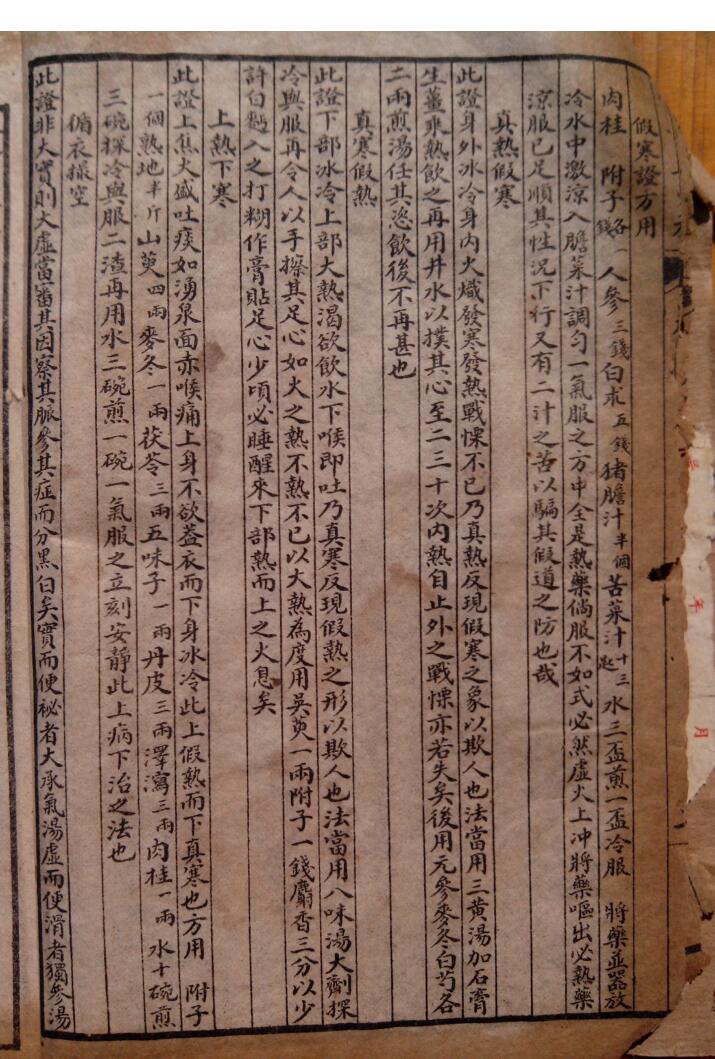 假寒證方用
肉桂 附子各一錢 人參三錢白朮五錢猪膽汁半個苦菜汁十三匙 水三盃煎一盃冷服 將藥並器放
冷水中激涼入膽菜汁調勻一氣服之方中全是熱藥倘服不如式必然虛火上冲將藥嘔出必熱藥
涼服已足順其性況下行又有二汁之苦以騙其假道之防也哉
真熱假寒
此證身外冰冷身內火熾發寒發熱戰慄不已乃真熱反現假寒之象以欺人也法當用三黄湯加石膏
生薑乘熱飲之再用井水以撲其心至二三十次內熱自止外之戰慄亦若失矣後用元參麥冬白芍各
二兩煎湯任其恣飲後不再甚也
真寒假熱
此證下部冰冷上部大熱渴欲飲水下喉即吐乃真寒反現假熱之形以欺人也法當用八味湯大劑探
冷與服再令人以手擦其足心如火之熱不熱不已以大熱為度用吳萸一兩附子一錢麝香三分以少
許白麵入之打糊作膏貼足心少頃必睡醒來下部熱而上之火息矣
上熱下寒
此證上焦火盛吐痰如湧泉面赤喉痛上身不欲蓋衣而下身冰冷此上假熱而下真寒也方用 附子
一個熟地半斤山萸四兩麥冬一兩茯苓三兩五味子一兩丹皮三兩澤瀉三兩肉桂一兩 水十碗煎
三碗探冷與服二渣再用水三碗煎一碗一氣服之立刻安靜此上病下治之法也
循衣撮空
此證非大實則大虛當審其因察其脈參其症而分黑白矣實而便祕者大承氣湯虛而便滑者獨參湯